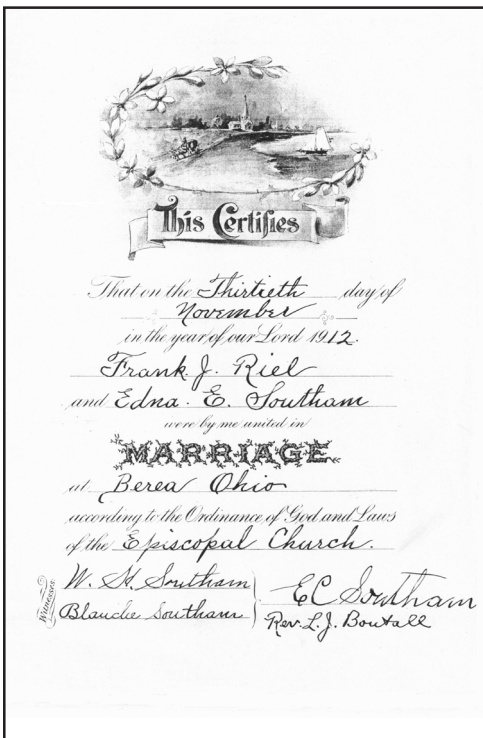 This Certifies
That on the Thirtieth day of
November
in the year of our Lord 1912.
Frank. J. Riel
and Edna. E. Southam
were by me united in
MARRIAGE
at Berea Ohio
according to the Ordinance of God and Laws
of the Episcopal Church.
Witnesses
W. H. Southam
Blanche Southam
E C Southam
Rev. L. J. Boutall